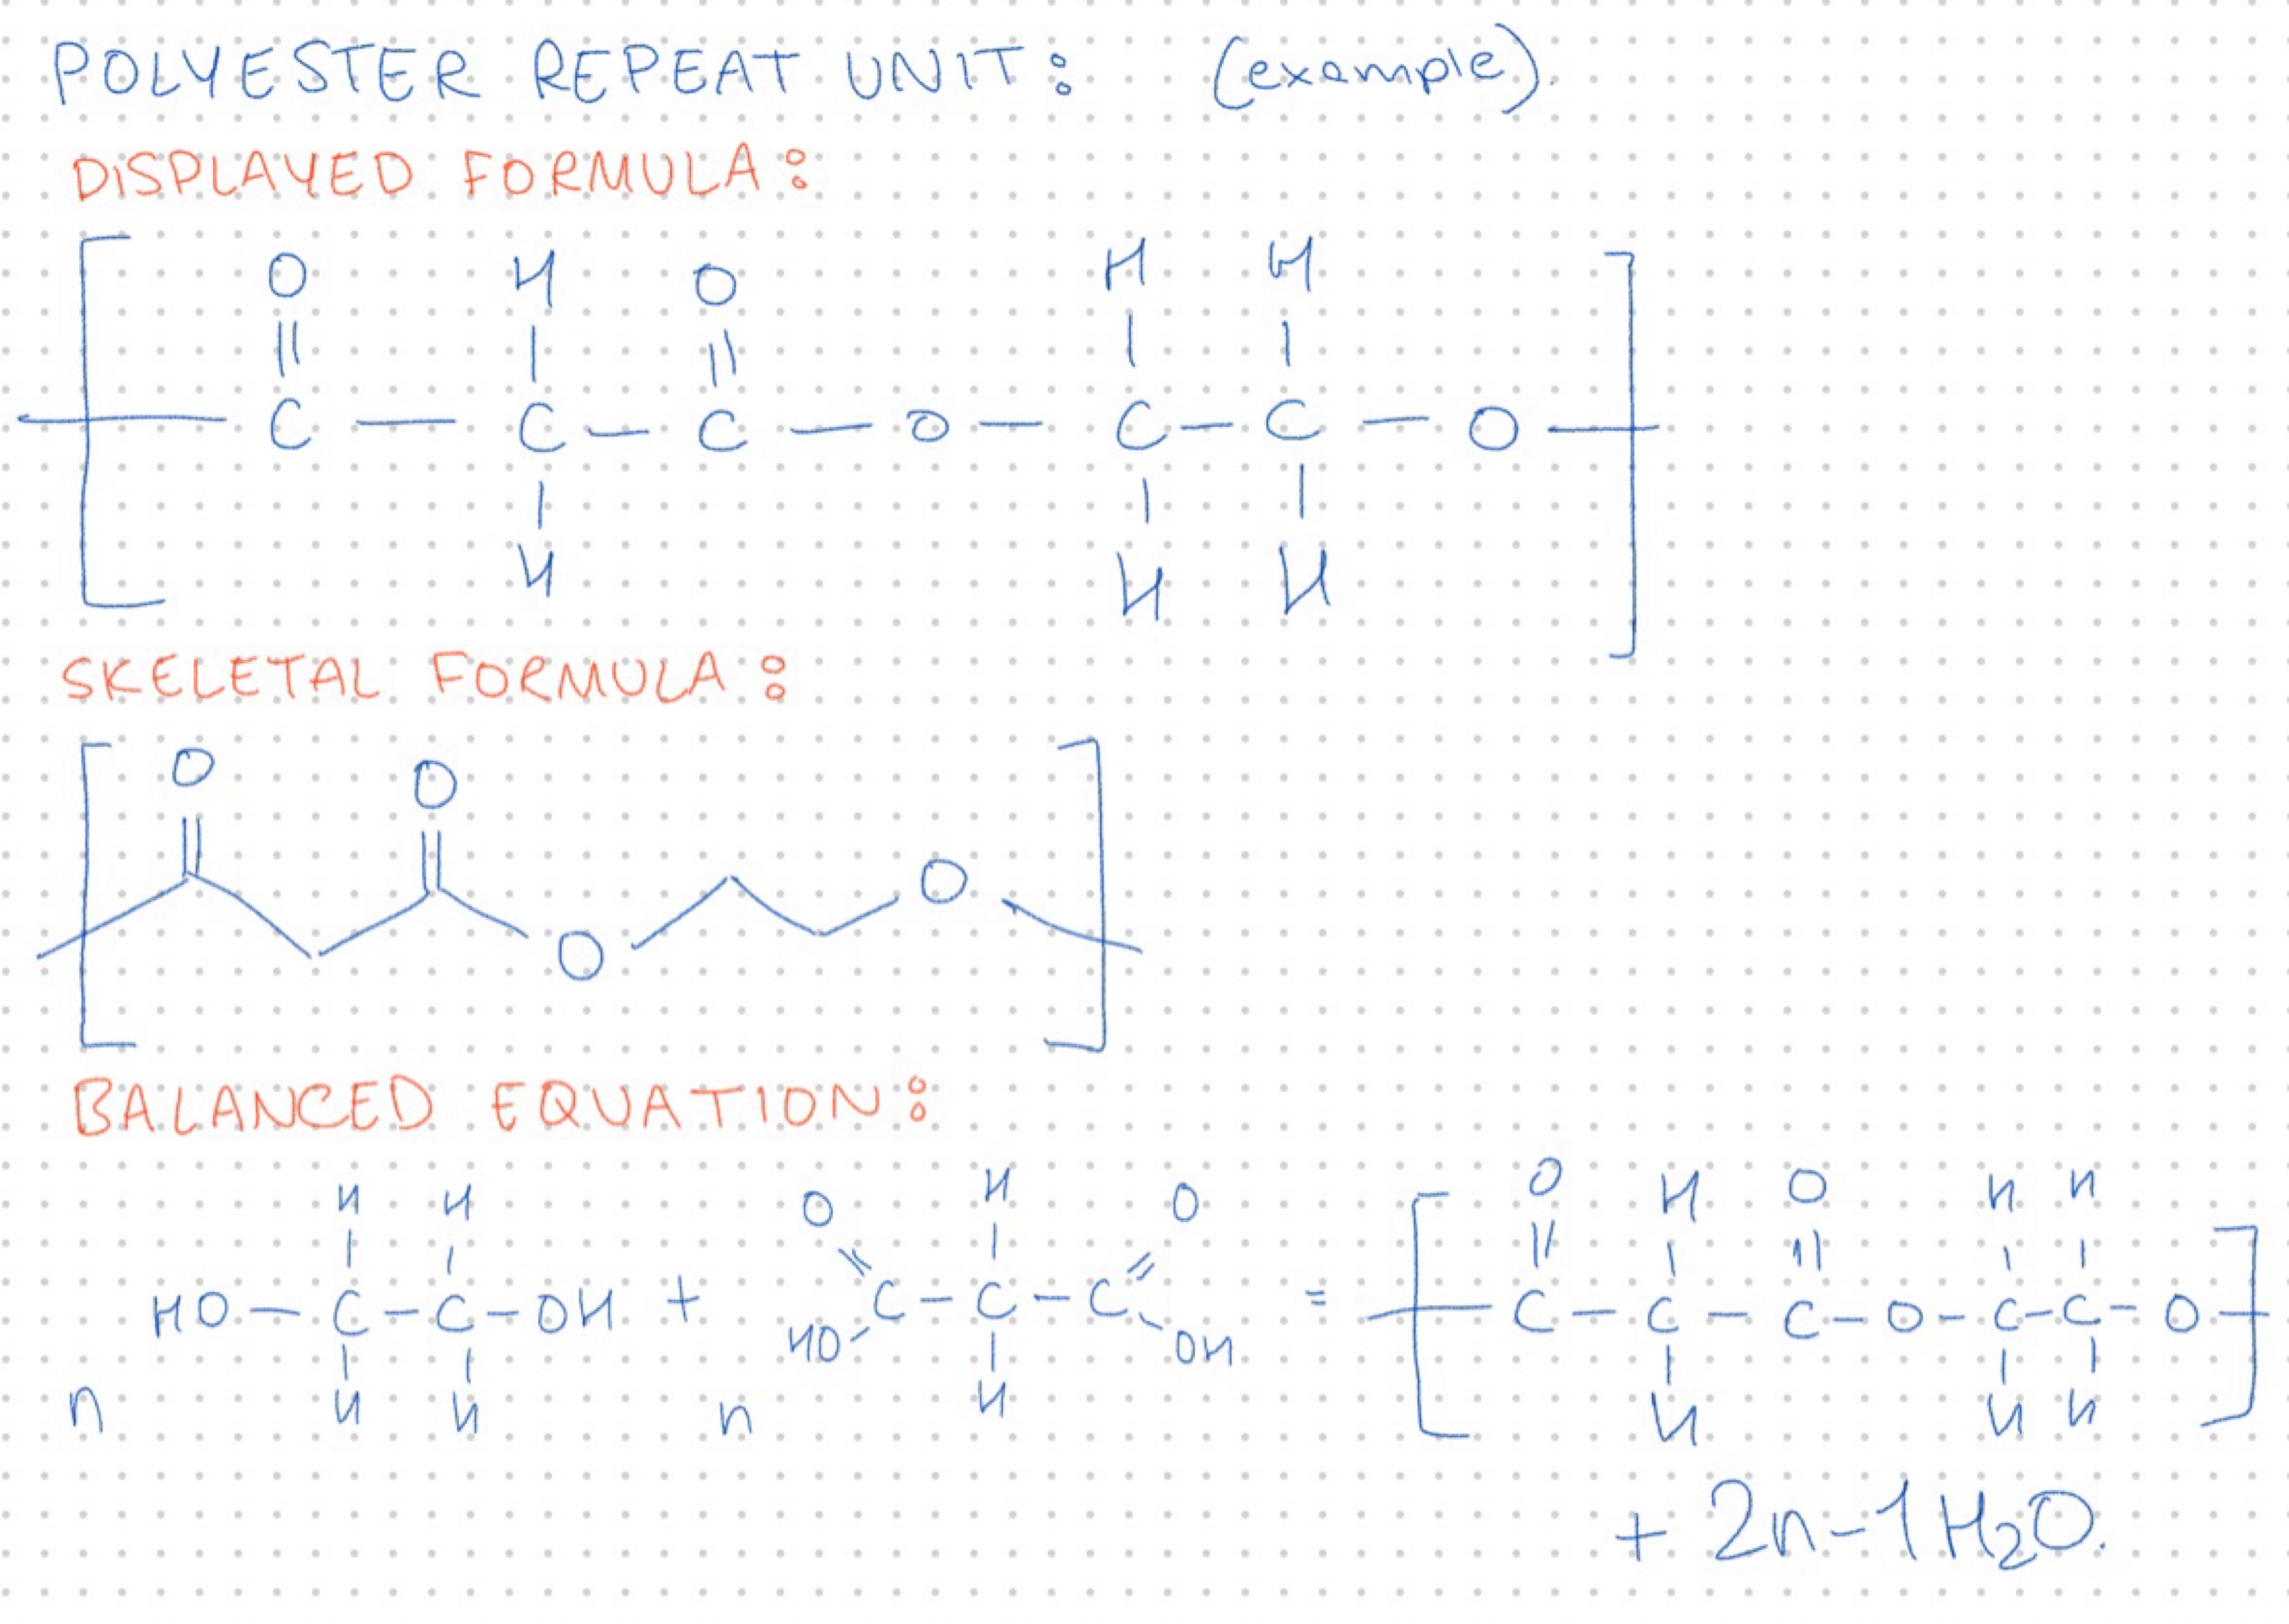 POLYESTER REPEAT UNIT: (example).
DISPLAYED FORMULA:
O H O H H
|| | || | |
C — C — C — O — C — C — O
| | |
H H H
SKELETAL FORMULA:
O O
O O
BALANCED EQUATION:
H H O H O O H O H H
HO — C — C — OH + C — C — C = C — C — C — O — C — C — O
HO OH
n H H n H H H H
+ 2n-1 H2O.